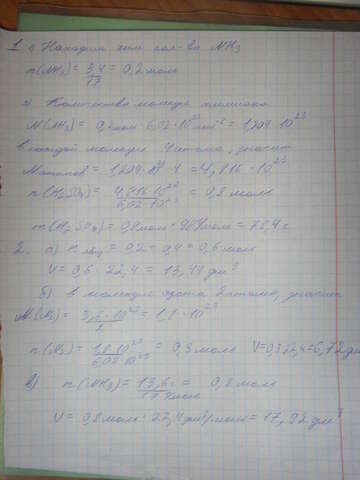 1. 1) Находим хим кол-во NH3
n(NH3) = 3,4 / 17 = 0,2 моль
2) Количество молекул аммиака
N(NH3) = 0,2 моль · 6,02 · 10^23 моль^-1 = 1,204 · 10^23
в каждой молекуле 4 атома, значит
N атомов = 1,204 · 10^23 · 4 = 4,816 · 10^23
n(H2SO4) = 4,816 · 10^23 / 6,02 · 10^23 = 0,8 моль
m(H2SO4) = 0,8 моль · 98 г/моль = 78,4 г
2. а) n общ = 0,2 + 0,4 = 0,6 моль
V = 0,6 · 22,4 = 13,44 дм^3
б) в молекуле азота 2 атома, значит
N(N2) = 3,6 · 10^23 / 2 = 1,8 · 10^23
n(N2) = 1,8 · 10^23 / 6,02 · 10^23 = 0,3 моль V = 0,3 · 22,4 = 6,72 дм
в) n(NH3) = 13,6 г / 17 г/моль = 0,8 моль
V = 0,8 моль · 22,4 дм^3/моль = 17,92 дм^3